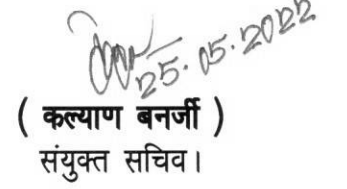 25.05.2022
( कल्याण बनर्जी )
संयुक्त सचिव।